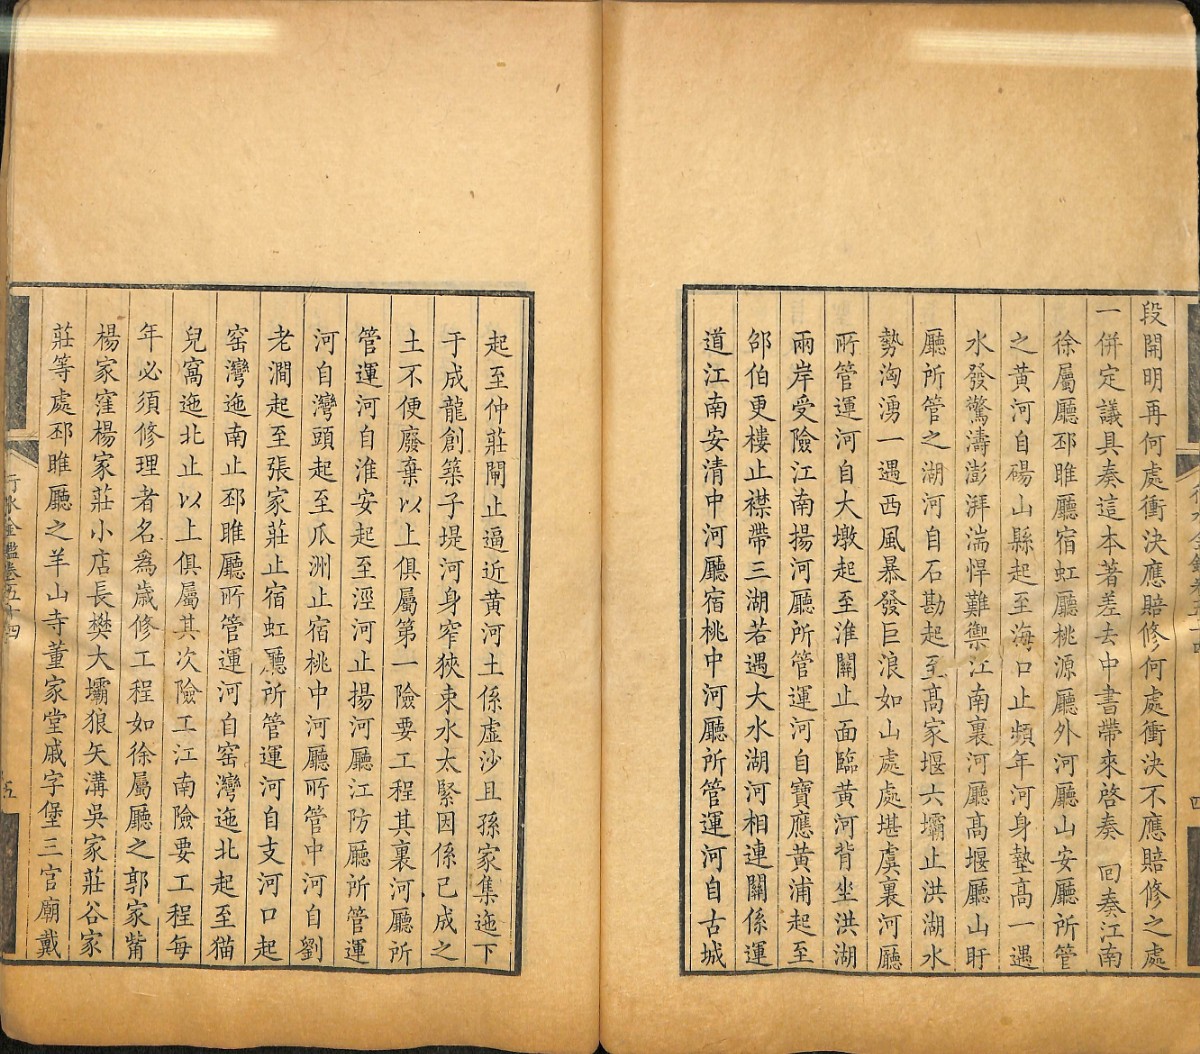 段開明再何處衝決應賠修何處衝決不應賠修之處
一併定議具奏這本著差去中書帶來啓奏 回奏江南
徐屬廳邳睢廳宿虹廳桃源廳外河廳山安廳所管
之黃河自碭山縣起至海口止頻年河身墊高一遇
水發驚濤澎湃湍悍難禦江南裏河廳高堰廳山盱
廳所管之湖河自石勘起至高家堰六壩止洪湖水
勢洶湧一遇西風暴發巨浪如山處處堪虞裏河廳
所管運河自大墩起至淮關止面臨黃河背坐洪湖
兩岸受險江南揚河廳所管運河自寶應黃浦起至
邵伯更樓止襟帶三湖若遇大水湖河相連關係運
道江南安清中河廳宿桃中河廳所管運河自古城
起至仲莊閘止逼近黃河土係虛沙且孫家集迤下
于成龍創築子堤河身窄狹束水太緊因係已成之
土不便廢棄以上俱屬第一險要工程其裏河廳所
管運河自淮安起至涇河止揚河廳江防廳所管運
河自灣頭起至瓜洲止宿桃中河廳所管中河自劉
老澗起至張家莊止宿虹廳所管運河自支河口起
窑灣迤南止邳睢廳所管運河自窑灣迤北起至猫
兒窩迤北止以上俱屬其次險工江南險要工程每
年必須修理者名爲歲修工程如徐屬廳之郭家嘴
楊家窪楊家莊小店長樊大壩狼矢溝吳家莊谷家
莊等處邳睢廳之羊山寺董家堂戚字堡三官廟戴
行水金鑑卷五十四
五